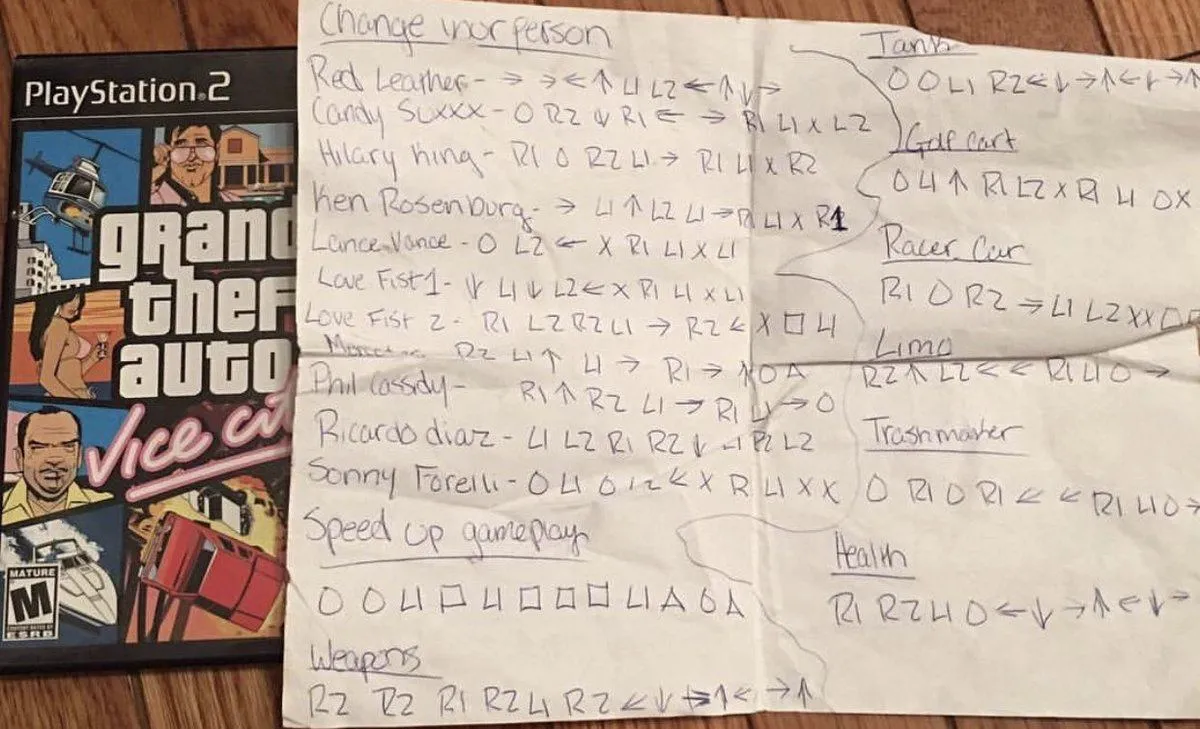 PlayStation®2
grand
theft
auto
Vice City
MATURE
M
ESRB
Change your person
Red Leather - → → ← ↑ L1 L2 ← ↑ ↓ →
Candy Suxxx - O R2 ↓ R1 ← → R1 L1 X L2
Hilary King - R1 O R2 L1 → R1 L1 X R2
Ken Rosenburg - → L1 ↑ L2 L1 → R1 L1 X R1
Lance Vance - O L2 ← X R1 L1 X L1
Love Fist 1 - ↓ L1 ↓ L2 ← X R1 L1 X L1
Love Fist 2 - R1 L2 R2 L1 → R2 ← X □ L1
R2 L1 ↑ L1 → R1 → ↑ O △
Phil Cassidy - R1 ↑ R2 L1 → R1 L1 → O
Ricardo diaz - L1 L2 R1 R2 ↓ L1 R2 L2
Sonny Forelli - O L1 O L2 ← X R1 L1 X X
Speed up gameplay
O O L1 □ L1 □ □ □ L1 △ O △
Weapons
R2 R2 R1 R2 L1 R2 ← ↓ → ↑ ← → ↑
Tank
O O L1 R2 ← ↓ → ↑ ← ↓ → ↑
Golf cart
O L1 ↑ R1 L2 X R1 L1 O X
Racer Car
R1 O R2 → L1 L2 X X □ □
Limo
R2 ↑ L2 ← ← R1 L1 O →
Trashmaster
O R1 O R1 ← ← R1 L1 O →
Health
R1 R2 L1 O ← ↓ → ↑ ← ↓ →